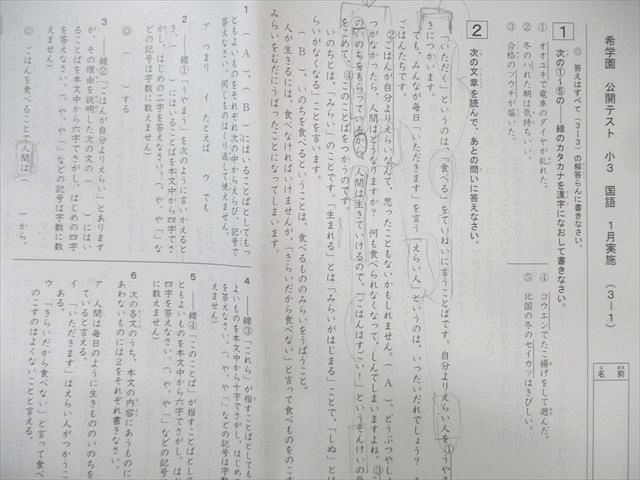 希学園 公開テスト 小3 国語 1月実施 (3-1)
◎ 答えはすべて(3-3)の解答らんに書きなさい。
1 次の①~⑤の──線のカタカナを漢字になおして書きなさい。
① オオユキで電車のダイヤが乱れた。
② 冬のハれた朝は気持ちいい。
③ 合格のツウチが届いた。
④ コウエンでたこ揚げをして遊んだ。
⑤ 北国の冬のセイカツはきびしい。
名前
2 次の文章を読んで、あとの問いに答えなさい。
「いただく」というのは、「食べる」をていねいに言うことばです。自分よりえらい人を①うやま
きにつかいます。
でも、みんなが毎日「いただきます」を言う「えらい人」というのは、いったいだれでしょう?
ごはんたちです。
②ごはんが自分よりえらいなんて、思ったこともないかもしれません。( A )、どうぶつやし
つがなかったら、人間はどうなりますか? 何も食べられなくなって、しんでしまいますよね。③こ
のいのちをもらっているから、人間は生きていけるので、「ごはんはすごい!」というそんけいの
をこめて、④このことばをつかうのです。
いのちとは、「みらい」のことです。「生まれる」とは「みらいがはじまる」ことで、「しぬ」とは
らいがなくなる」ことを言います。
( B )、いのちを食べるということは、食べるもののみらいをうばうこと。
人が生きるには、食べなければいけませんが、「きらいだから食べない」と言って食べものをのこす
みらいをむだにうばったことになってしまいます。
1 ( A )、( B )にはいることばとしてもっ
ともよいものをそれぞれ次の中からえらび、記号で
答えなさい。同じものはくり返して使えません。
ア つまり イ たとえば ウ でも
2 ──線①「うやまう」を次のように言いかえると
き、( )にはいることばを本文中から六字でさ
がし、はじめの二字を答えなさい。(、や。や「」な
どの記号は字数に数えません)
◎ ( )する
3 ──線②「ごはんが自分よりえらい」とあります
が、その理由を説明した次の文の( )にはい
ることばを本文中から六字でさがし、はじめの四字
を答えなさい。(、や。や「」などの記号は字数に数
えません)
◎ ごはんを食べることで人間は( )から。
4 ──線③「これら」が指すことばとしても
よいものを本文中から十字でさがし、はじめの
を答えなさい。(、や。や「」などの記号は字数
えません)
5 ──線④「このことば」が指すことばとし
ともよいものを本文中から六字でさがし、は
四字を答えなさい。(、や。や「」などの記号
に数えません)
6 次の各文のうち、本文の内容にあうものに
あわないものには2をそれぞれ書きなさい。
ア 人間は毎日のように生きもののいのちを
ていると言える。
イ 「いただきます」はえらい人がつかうこ
ある。
ウ 「きらいだから食べない」と言って食べ
のこすのはよくないことと言える。